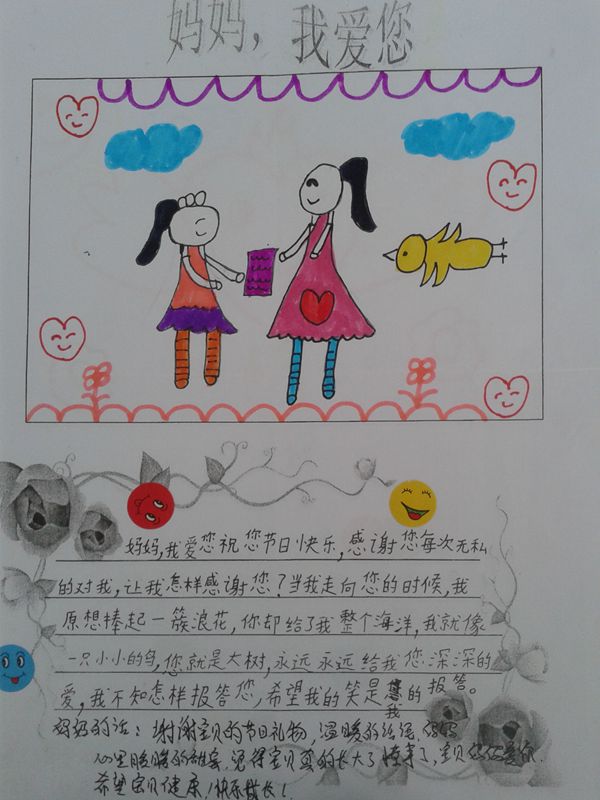 妈妈，我爱您
妈妈，我爱您祝您节日快乐，感谢您每次无私
的对我，让我怎样感谢您？当我走向您的时候，我
原想棒起一簇浪花，你却给了我整个海洋，我就像
一只小小的鸟，您就是大树，永远永远给我您深深的
爱，我不知怎样报答您，希望我的笑是我的报答。
妈妈的话：谢谢宝贝的节日礼物，温暖的话语，妈妈
心里暖暖的，觉得宝贝真的长大了懂事了，宝贝妈妈爱你
希望宝贝健康！快乐成长！